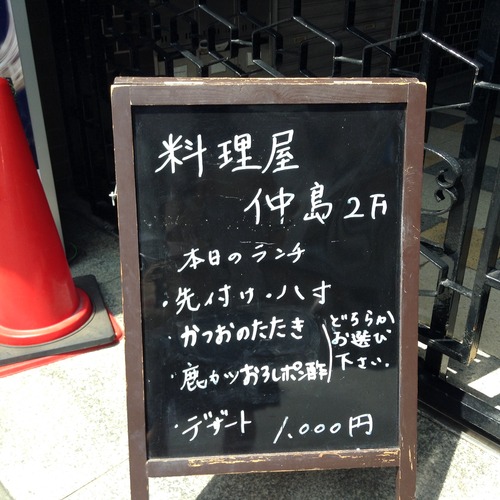 料理屋
仲島 2F
本日のランチ
・先付け・八寸
・かつおのたたき
・鹿カツおろしポン酢
どちらか
お選び
下さい.
・デザート 1,000円